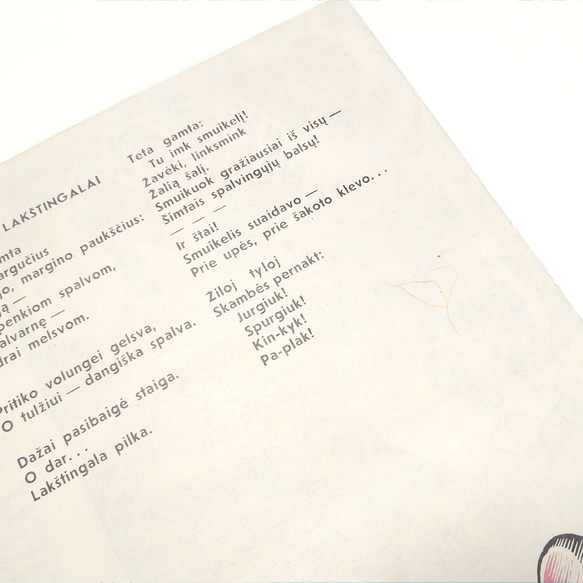 LAKŠTINGALAI
margino paukščius:
penkiom spalvom,
melsvom.
Pritiko volungei gelsva,
O tulžiui — dangiška spalva.
Dažai pasibaigė staiga.
O dar...
Lakštingala pilka.
Teta gamta:
Tu imk smuikelį!
Žavėki, linksmink
Žalią šalį.
Smuikuok gražiausiai iš visų —
Šimtais spalvingųjų balsų!
— — —
Ir štai!
Smuikelis suaidavo —
Prie upės, prie šakoto klevo...
Žiloj tyloj
Skambės pernakt:
Jurgiuk!
Spurgiuk!
Kin-kyk!
Pa-plak!